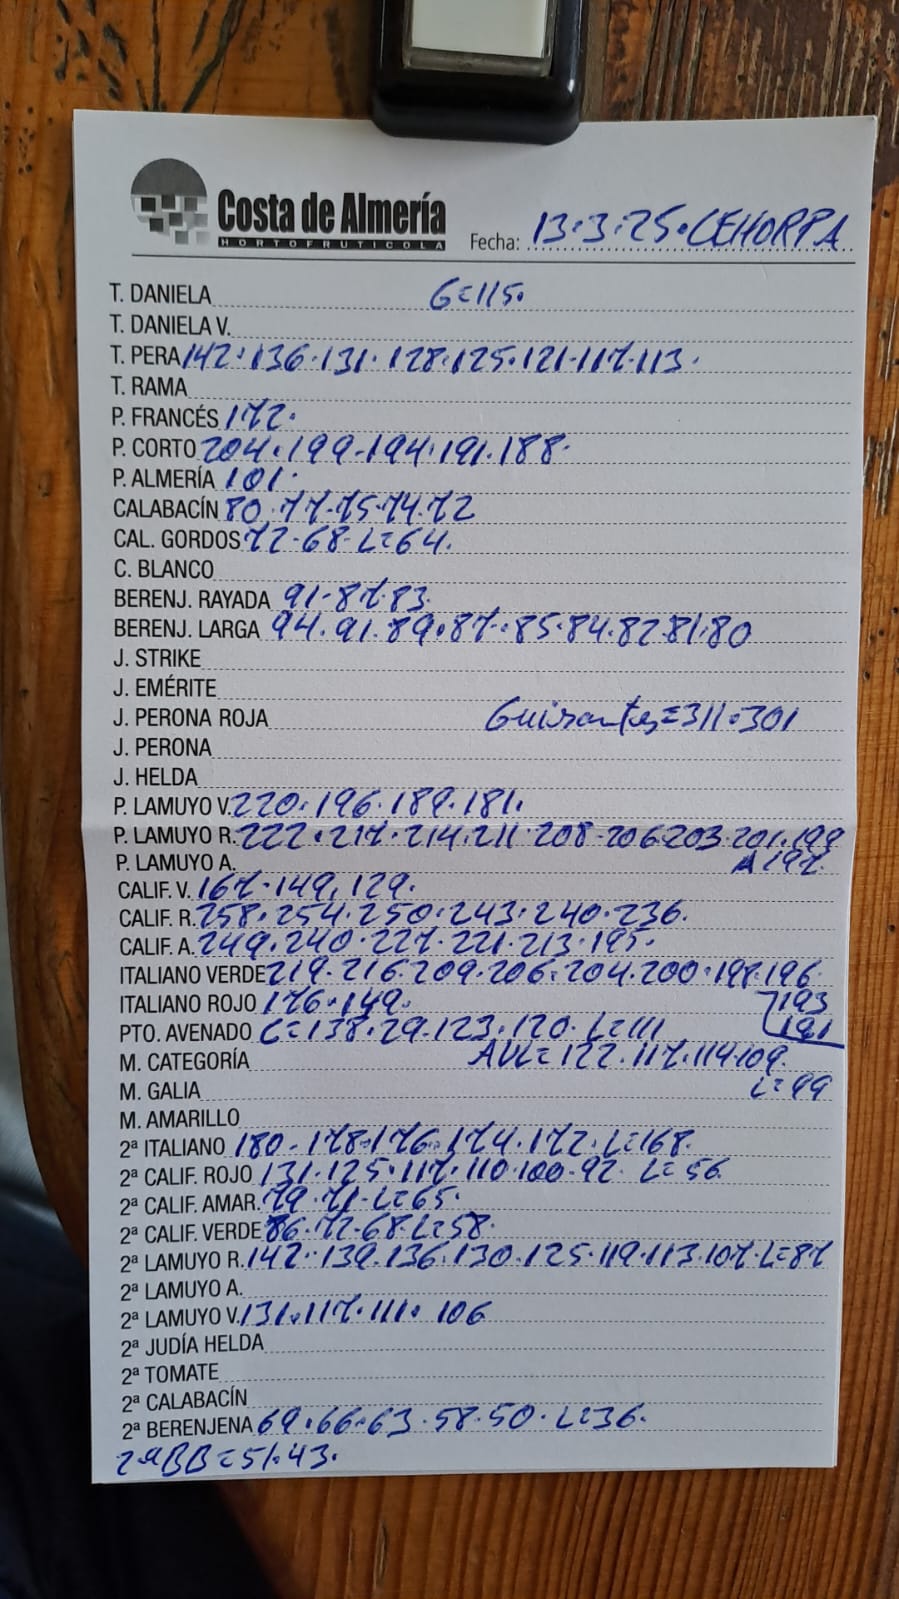 Costa de Almería
HORTOFRUTICOLA
Fecha: 13.3.25.CEHORPA
T. DANIELA G=115.
T. DANIELA V.
T. PERA 142.136.131.128.125.121.117.113.
T. RAMA
P. FRANCÉS 172.
P. CORTO 204.199.194.191.188.
P. ALMERÍA 101.
CALABACÍN 80.77.75.74.72
CAL. GORDOS 72.68.L=64.
C. BLANCO
BERENJ. RAYADA 91.87.83.
BERENJ. LARGA 94.91.89.87.85.84.82.81.80
J. STRIKE
J. EMÉRITE
J. PERONA ROJA Guisantes=311.301
J. PERONA
J. HELDA
P. LAMUYO V. 220.196.189.181.
P. LAMUYO R. 222.217.214.211.208.206.203.201.199
P. LAMUYO A. A 197.
CALIF. V. 167.149.129.
CALIF. R. 258.254.250.243.240.236.
CALIF. A. 249.240.227.221.213.195.
ITALIANO VERDE 219.216.209.206.204.200.198.196
ITALIANO ROJO 176.149. 193
PTO. AVENADO G=138.29.123.120.L=111 191
M. CATEGORÍA AVL=122.117.114.109.
M. GALIA L=99
M. AMARILLO
2ª ITALIANO 180.178.176.174.172.L=168.
2ª CALIF. ROJO 131.125.117.110.100.92.L=56.
2ª CALIF. AMAR. 79.71.L=65.
2ª CALIF. VERDE 86.72.68.L=58.
2ª LAMUYO R. 142.139.136.130.125.119.113.107.L=87
2ª LAMUYO A.
2ª LAMUYO V. 131.117.111.106
2ª JUDÍA HELDA
2ª TOMATE
2ª CALABACÍN
2ª BERENJENA 69.66.63.58.50.L=36.
2ªBB=51.43.